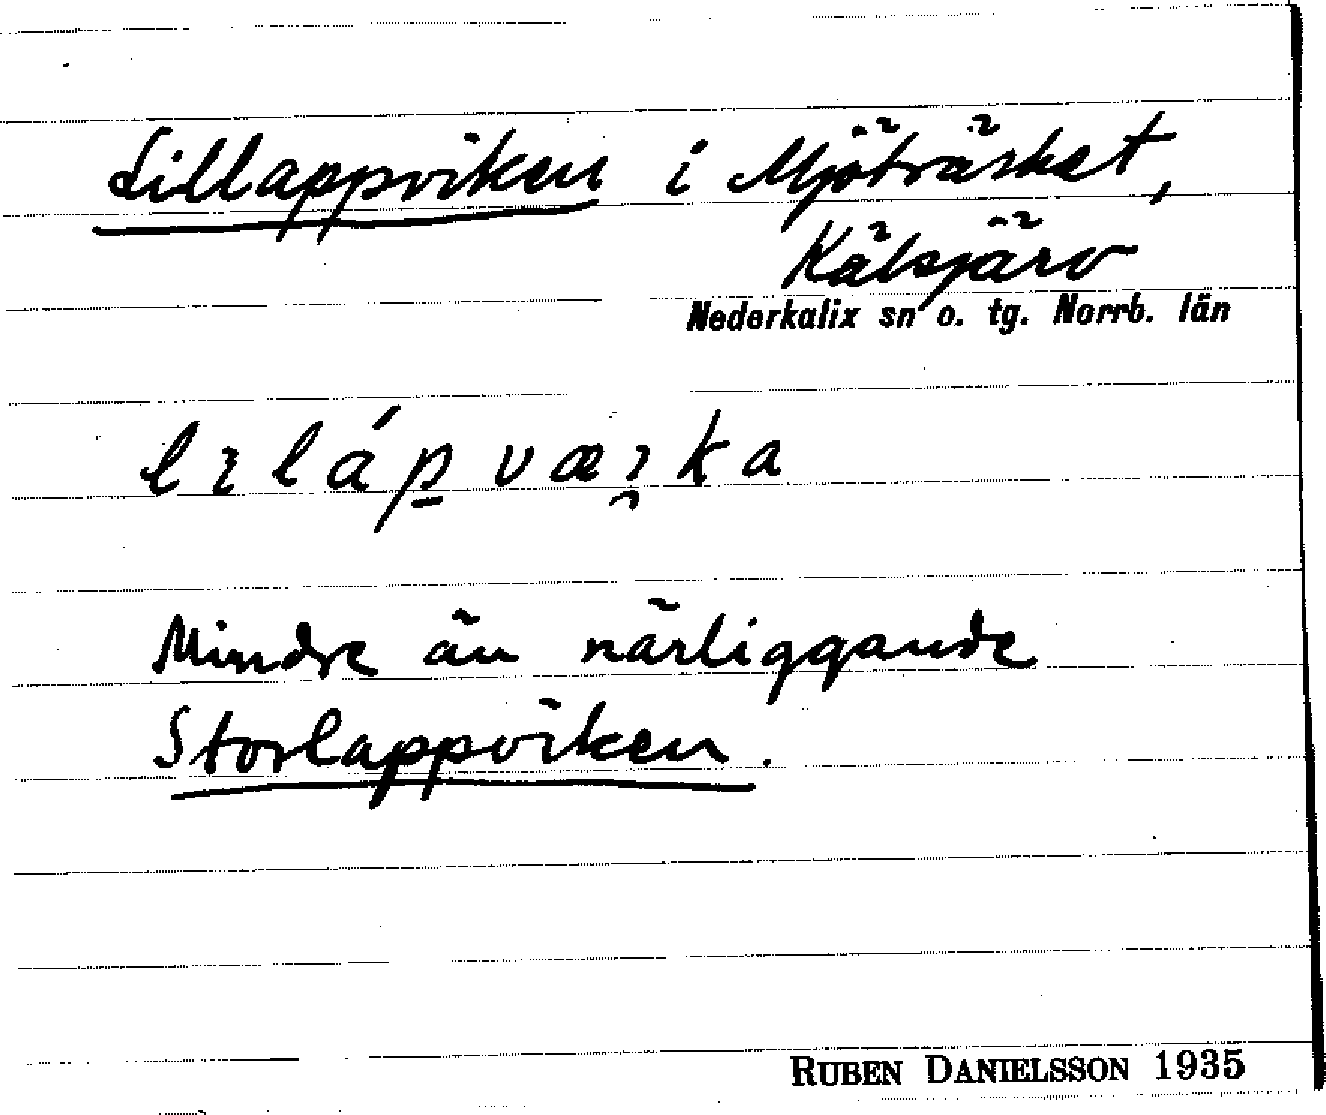 Lillappviken i Mjöträsket,
Kälsjärv
Nederkalix sn o. tg. Norrb. län
lɩláp væɩ̯ka
Mindre än närliggande
Storlappviken.
RUBEN DANIELSSON 1935